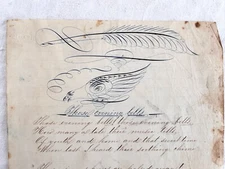 Those evening bells
Those evening bells, those evening bells,
How many a tale their music tells,
Of youth and home and that sweet time
When last I heard their soothing chime